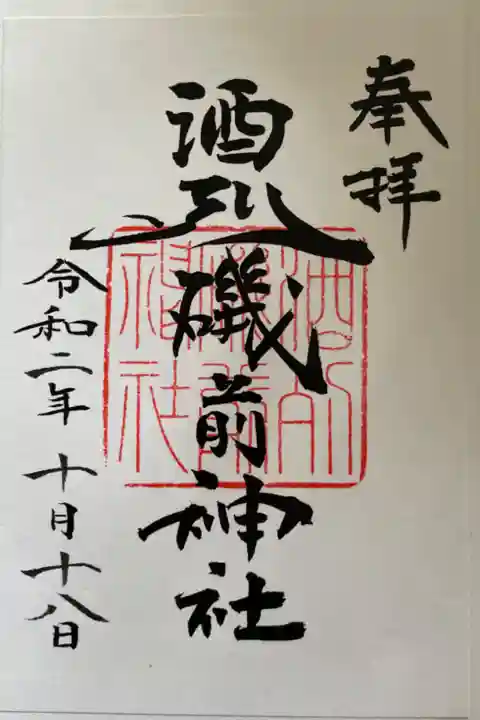 奉拝
酒列磯前神社
令和二年 十月十八日
酒列
磯前
神社